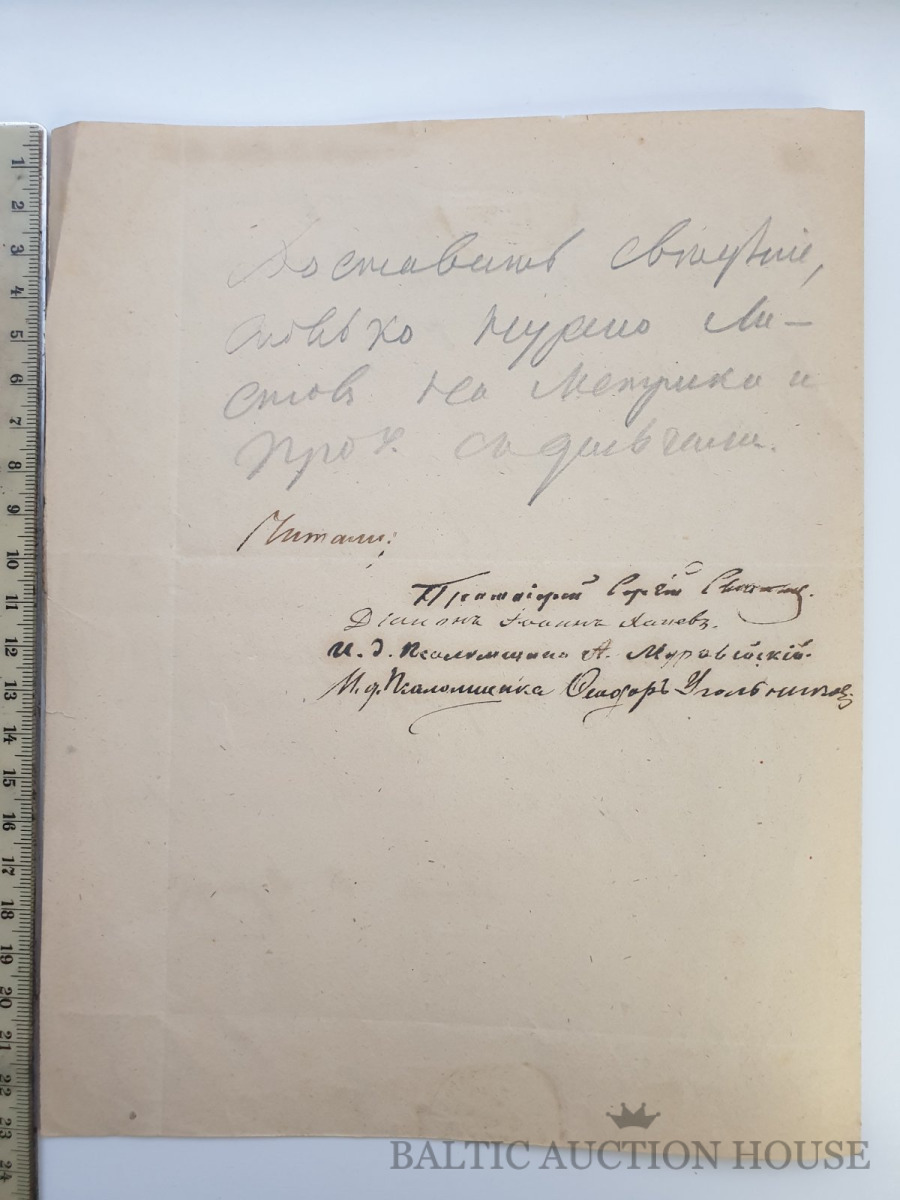 Доставить свѣдѣніе,
сколько нужно ли-
стовъ на метрики и
проч.
Читали:
Сергій
Діаконъ Іоаннъ
И. д. Псаломщика А. Муравійскій.
И. д. Псаломщика Ѳеодоръ Угольниковъ
BALTIC AUCTION HOUSE
1
2
3
4
5
6
7
8
9
10
11
12
13
14
15
16
17
18
19
20
21
22
23
24